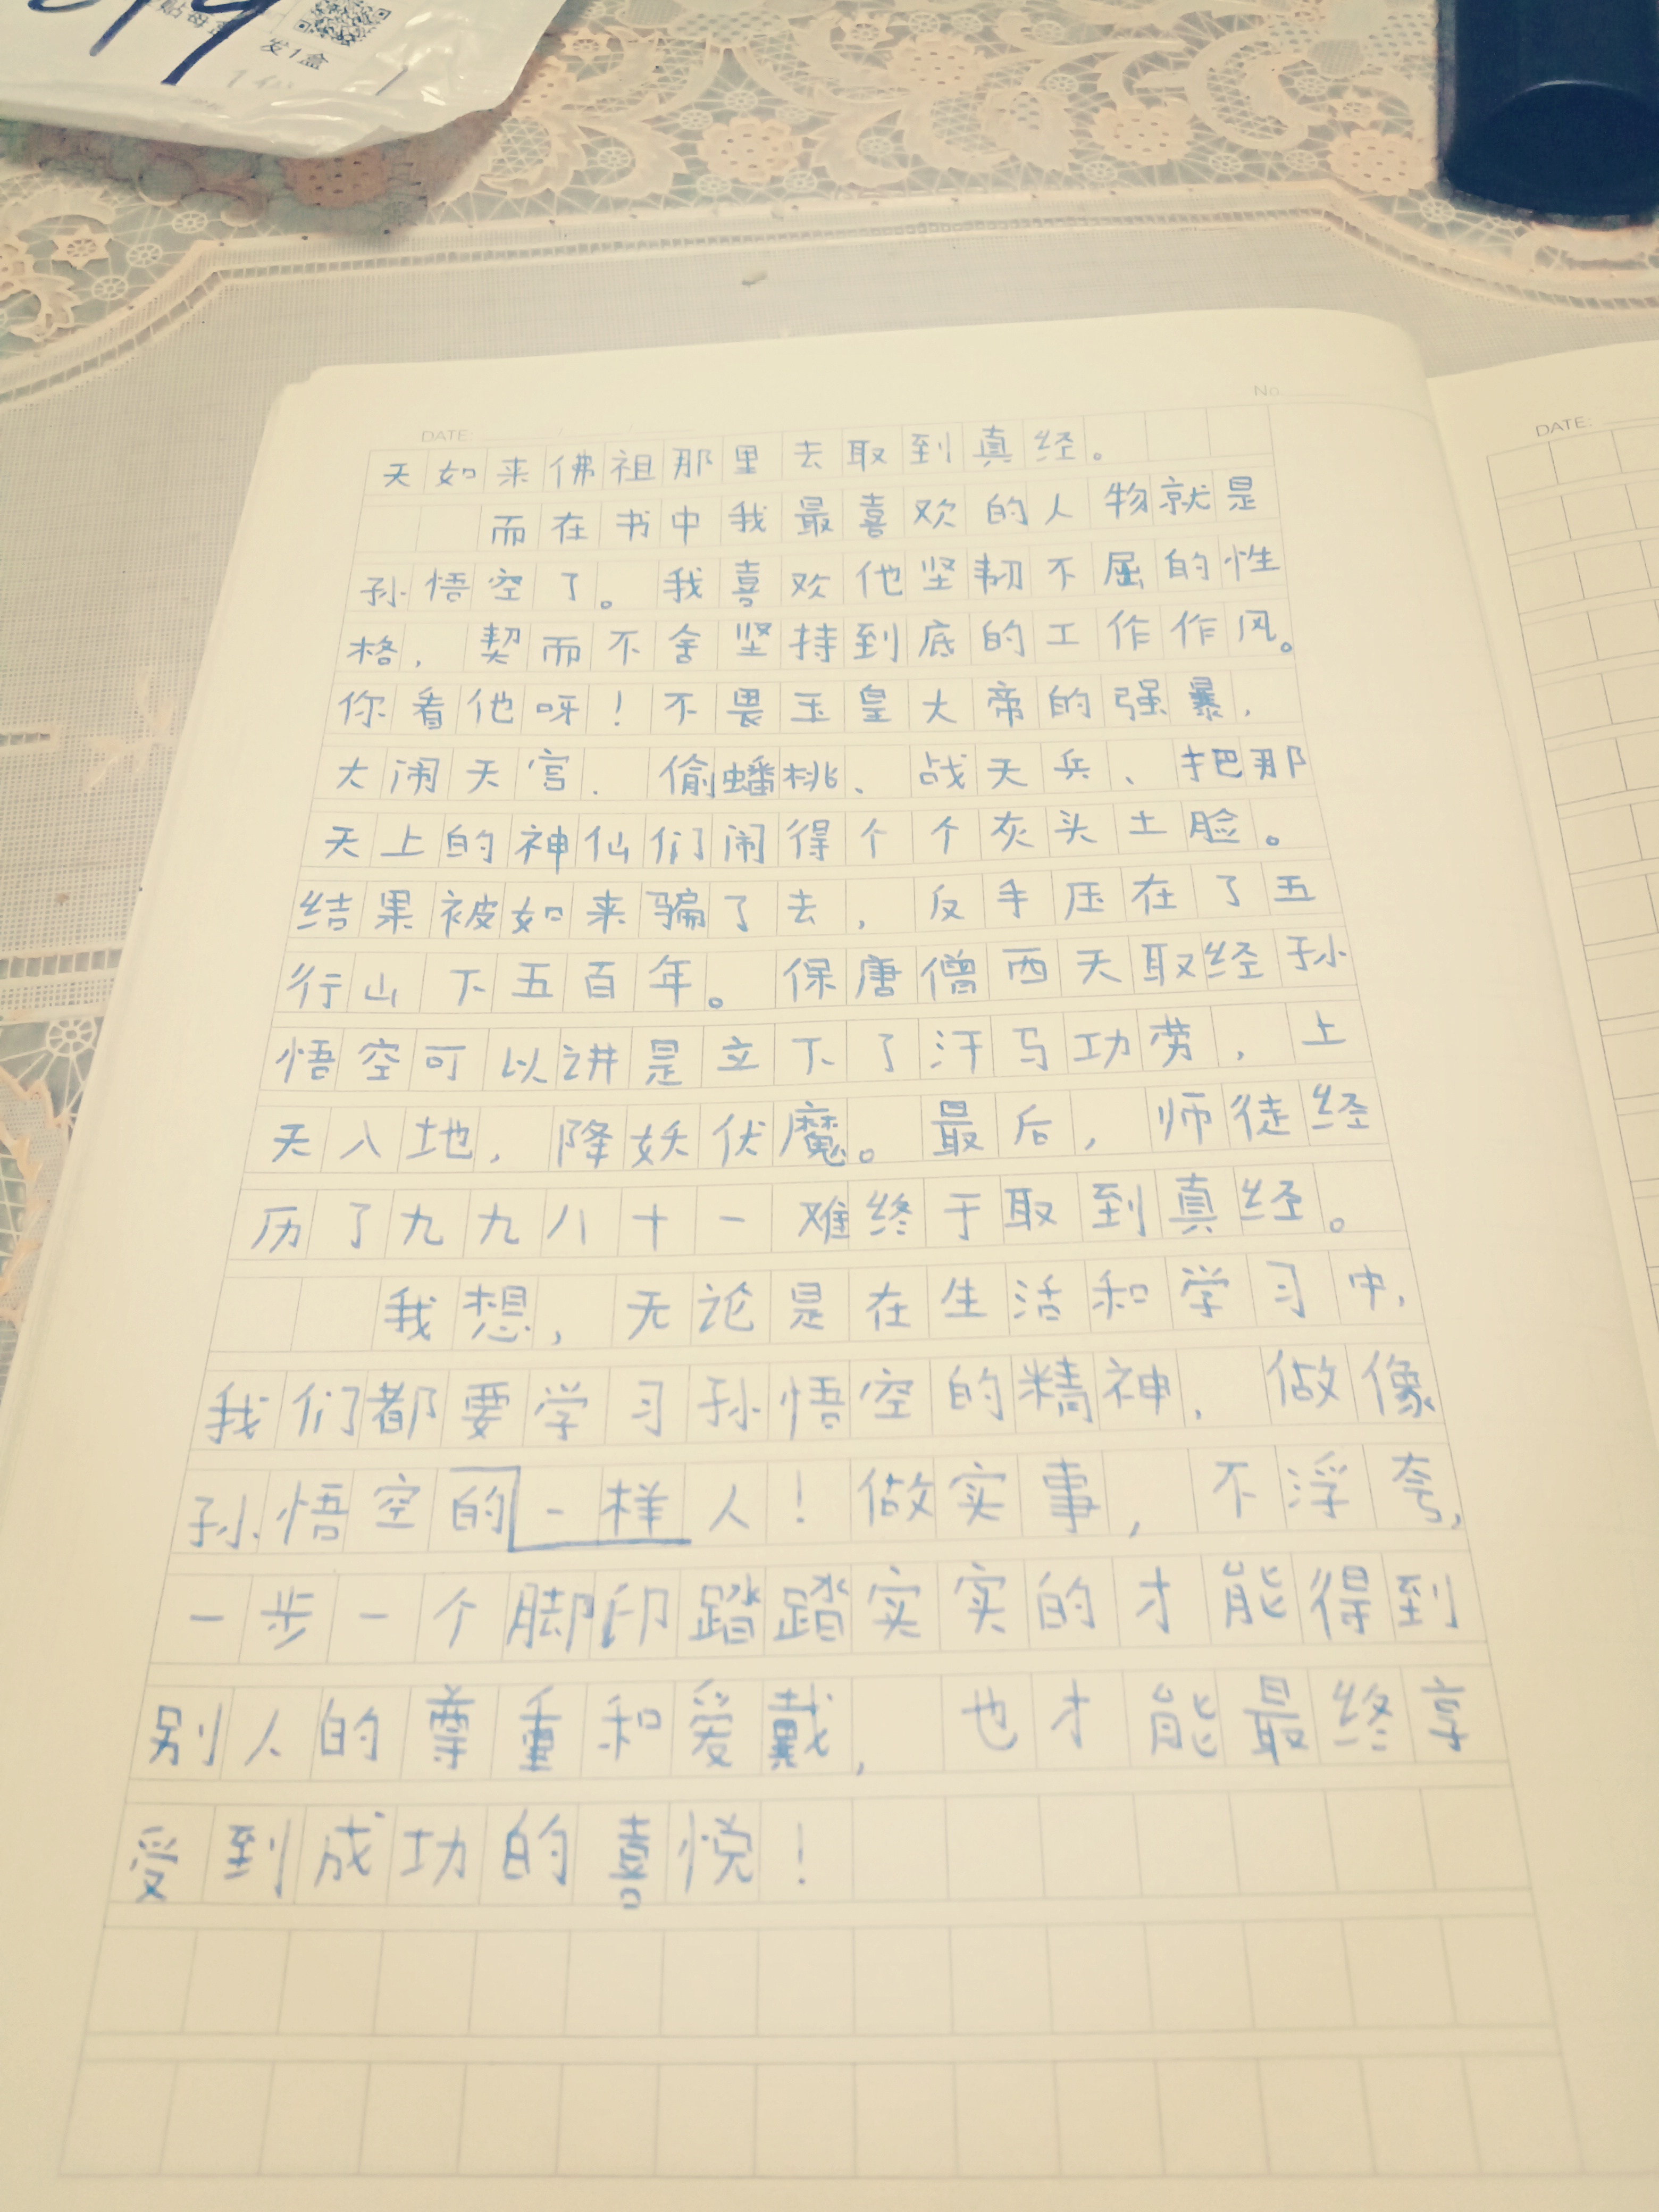 发1盒
No.
DATE:
DATE:
天如来佛祖那里去取到真经。
而在书中我最喜欢的人物就是
孙悟空了。我喜欢他坚韧不屈的性
格,契而不舍坚持到底的工作作风。
你看他呀!不畏玉皇大帝的强暴,
大闹天宫、偷蟠桃、战天兵、把那
天上的神仙们闹得个个灰头土脸。
结果被如来骗了去,反手压在了五
行山下五百年。保唐僧西天取经孙
悟空可以讲是立下了汗马功劳,上
天入地,降妖伏魔。最后,师徒经
历了九九八十一难终于取到真经。
我想,无论是在生活和学习中,
我们都要学习孙悟空的精神,做像
孙悟空的一样人!做实事,不浮夸,
一步一个脚印踏踏实实的才能得到
别人的尊重和爱戴,也才能最终享
受到成功的喜悦!